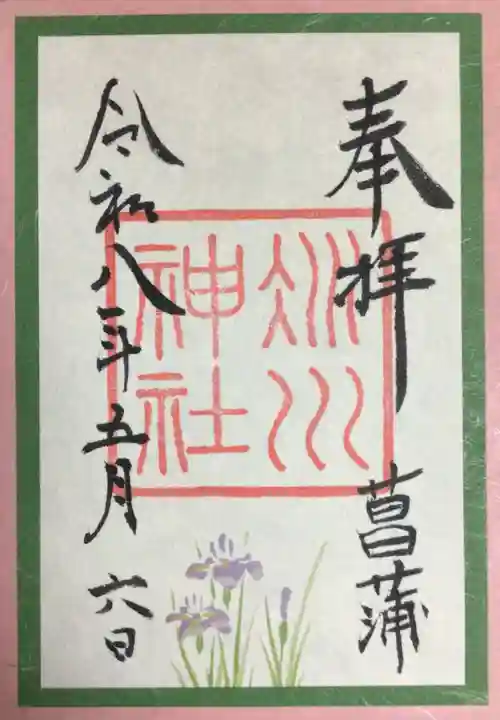 奉拝
菖蒲
氷川
神社
令和八年五月六日